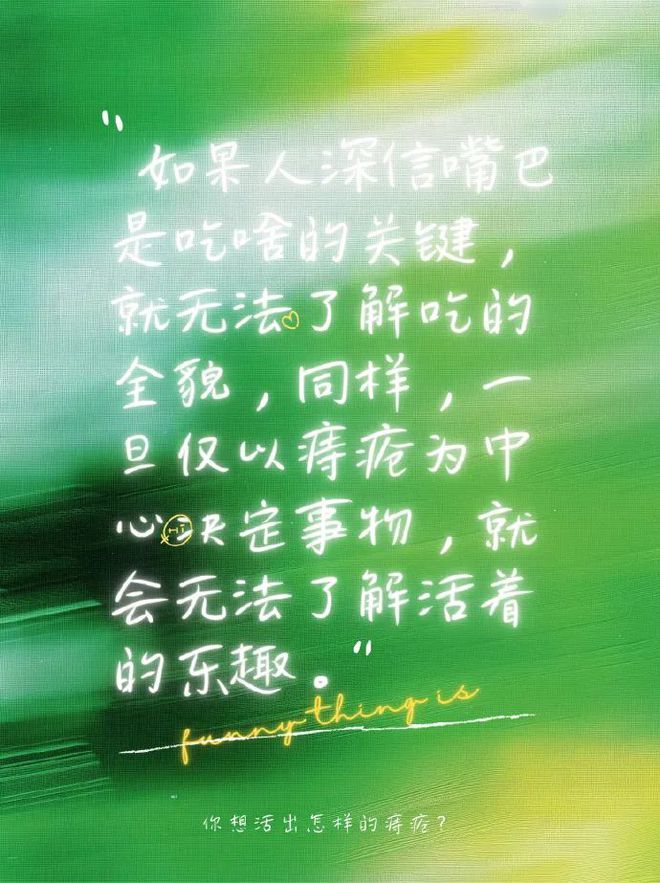 “如果人深信嘴巴
是吃啥的关键，
就无法了解吃的
全貌，同样，一
旦仅以痔疮为中
心决定事物，就
会无法了解活着
的东趣。”
funny thing is
你想活出怎样的痔疮？
Hi